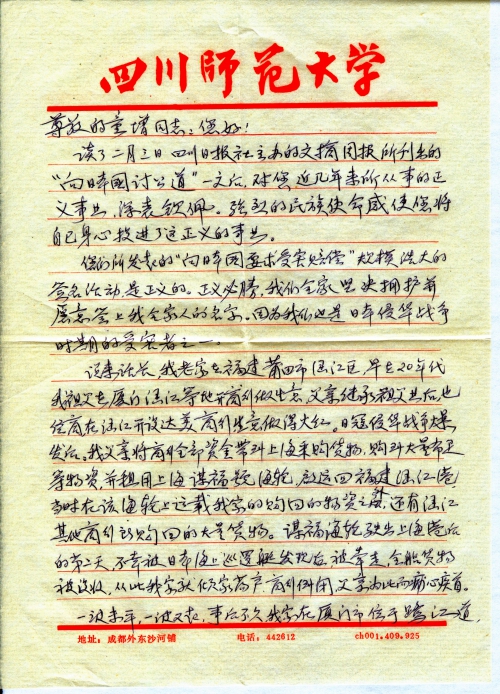 四川師范大学
尊敬的童增同志：您好！
读了二月三日四川日报社主办的文摘周报所刊出的
“向日本国讨公道”一文后，对您近几年来所从事的正
义事业，深表钦佩。强烈的民族使命感使您将
自己身心投进了这正义的事业。
您们所发起的“向日本国要求受害赔偿”规模浩大的
签名活动，是正义的。正义必胜，我们全家坚决拥护并
愿意签上我全家人的名字。因为我们也是日本侵华战争
时期的受害者之一。
说来话长，我老家在福建莆田市涵江区，早在20年代
我祖父在厦门涵江等地开商行做生意，父亲继承祖父业后，也
在涵江开设达美商行生意做得大红。日寇侵华战争爆
发后。我父亲将商行全部资金带到上海采购货物，购到大量布疋
等物资并租用上海谋福号海轮，启运回福建涵江港
当时在该海轮上运载我家的购回的物资之外，还有涵江
其他商行所购回的大量货物。谋福海轮驶出上海港后
的第二天，不幸被日本海上巡逻艇发现后，被牵走，全船货物
被没收，从此我家就倾家荡产，商行倒闭，父亲为此而痛心疾首。
一波未平，一波又起，事后不久我家在厦门市位于鹭江道，
地址：成都外东沙河铺 电话：442612 ch001.409.925